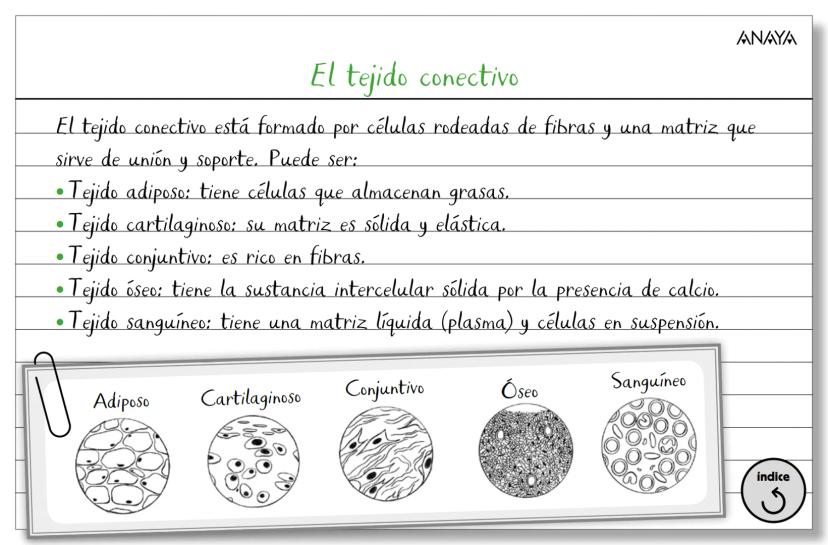 ANAYA
El tejido conectivo
El tejido conectivo está formado por células rodeadas de fibras y una matriz que
sirve de unión y soporte. Puede ser:
• Tejido adiposo: tiene células que almacenan grasas.
• Tejido cartilaginoso: su matriz es sólida y elástica.
• Tejido conjuntivo: es rico en fibras.
• Tejido óseo: tiene la sustancia intercelular sólida por la presencia de calcio.
• Tejido sanguíneo: tiene una matriz líquida (plasma) y células en suspensión.
Adiposo
Cartilaginoso
Conjuntivo
Óseo
Sanguíneo
índice